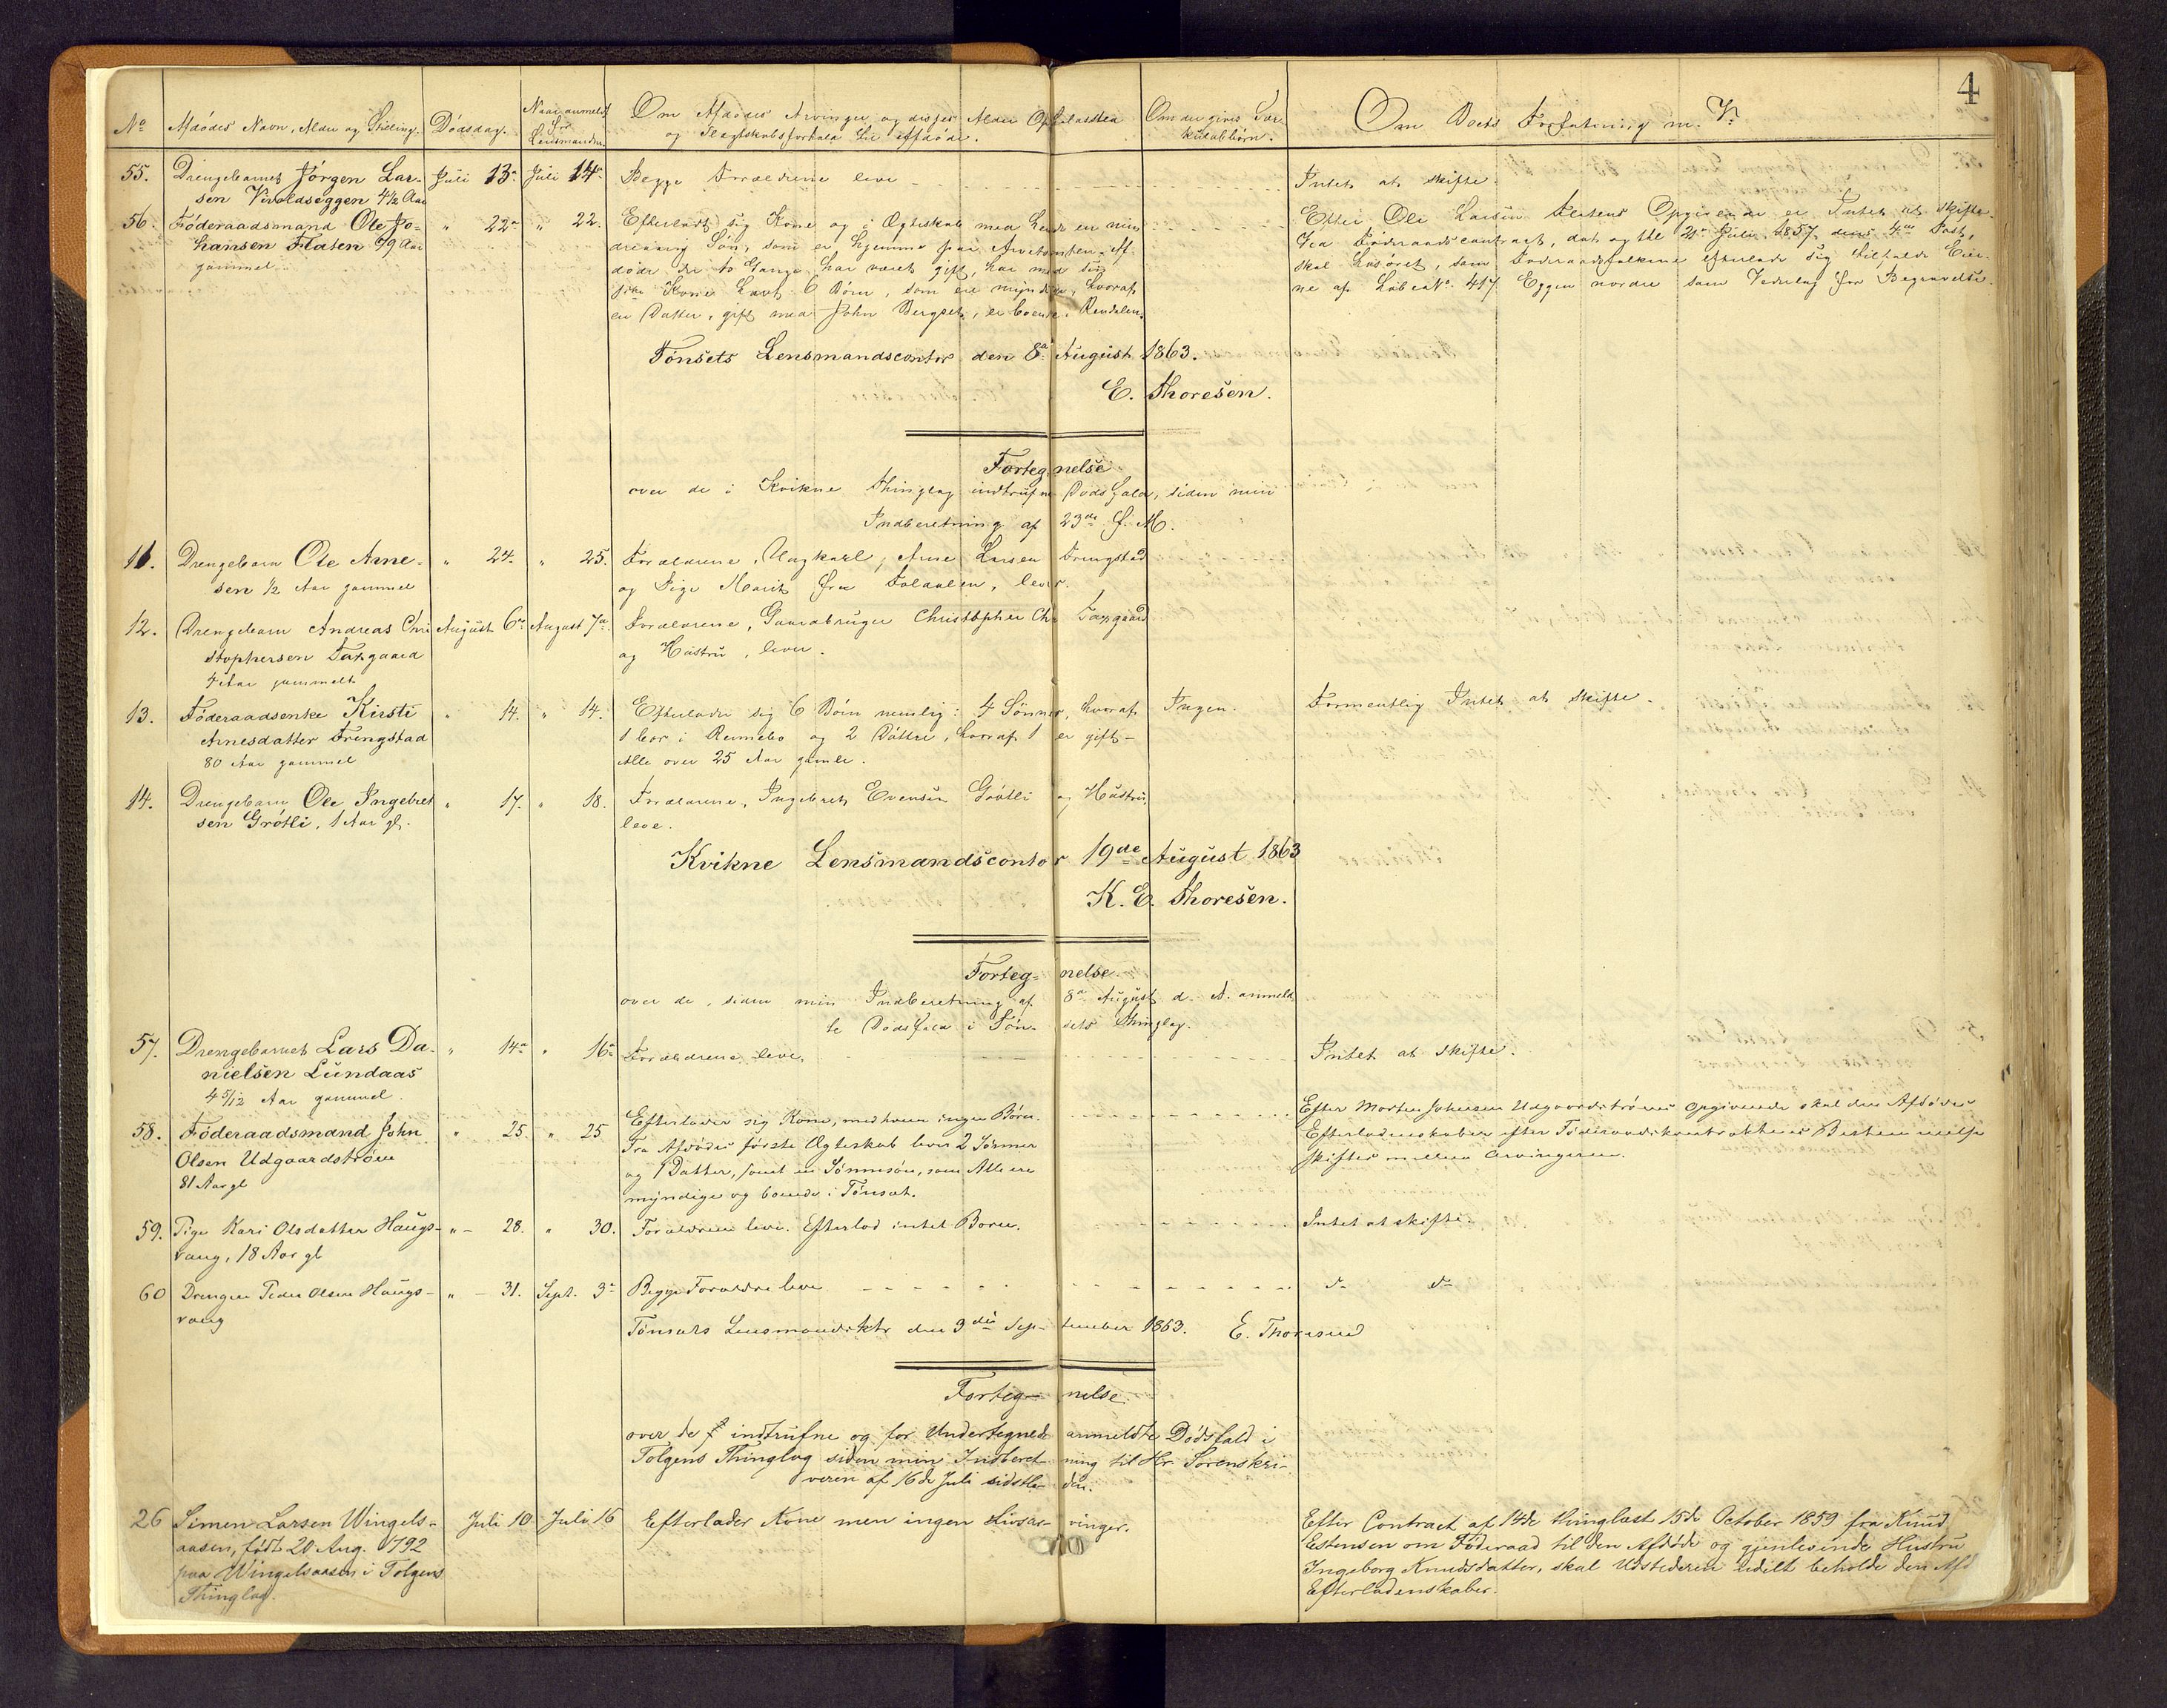 4
No
Afdødes Navn, Alder og Stilling.
Dødsdag.
Naar anmeldt
for
Lensmanden
Om Afdødes Arvinger og disses Alder Opholdssted
og Slegtskabsforhold til Afdøde.
Om der gives Sær-
kuldbørn.
Om Boets Forfatning m. V.
55.
Drengebarnet Jørgen Lar-
sen Vivoldseggen 4½ Aar
Juli 13de
Juli 14de
Begge Forældrene leve
Intet at skifte.
56.
Føderaadsmand Ole Jo-
hansen Flaten 79 Aar
gammel
" 22de
" 22.
Efterladt sig Kone og i Ægteskab med hende en min
dreaarig Søn, som er hjemme paa Arvetomten. Af
døde der to Gange har været gift, har med sin
første Kone havt 6 Børn, som ere myndige, hvoraf
en Datter, gift med John Bergset, er boende i Rendalen.
Efter Ole Larsen Flatens Opgivende er Intet at skifte.
Via Føderaadscontract, dat og thl 21de Juli 1857 dens 4de Post,
skal Løsøret, som Føderaadsfolkene efterlade sig tilfalde Eier-
ne af Løbe No. 417 Eggen nordre som Vederlag for Begravelse.
Tønsets Lensmandscontor den 8de August 1863.
E. Thoresen.
Fortegnelse
over de i Kvikne Thinglag indtrufne Dødsfald, siden min
Indberetning af 23de f. M.
11.
Drengebarn Ole Arne-
sen ½ Aar gammel
" 24.
" 25.
Forældrene, Ungkarl, Arne Larsen Frengstad
og Pige Marit fra Foldalen, lever.
12.
Drengebarn Andreas Chri
stophersen Faxgaard
4 Aar gammelt
August 6de
August 7de
Forældrene, Gaardbruger Christopher Chr Faxgaard
og Hustru, lever.
13.
Føderaadsenke Kirsti
Arnesdatter Frengstad
80 Aar gammel
" 14.
" 14.
Efterlader sig 6 Børn nemlig: 4 Sønner, hvoraf
1 bor i Rennebo og 2 Døttre, hvoraf 1 er gift -
Alle over 25 Aar gamle.
Ingen.
Formentlig Intet at skifte.
14.
Drengebarn Ole Ingebret
sen Grøtli, 1 Aar gl.
" 17.
" 18.
Forældrene, Ingebret Evensen Grøtli og Hustru,
leve.
Kvikne Lensmandscontor 19de August 1863
K. E. Thoresen.
Forteg- nelse
over de, siden min Indberetning af 8de August d. A. anmeld
te Dødsfald i Tøn- sets Thinglag.
57.
Drengebarnet Lars Da-
nielsen Lundaas
4 5/12 Aar gammel.
" 14de
" 16de
Forældrene leve.
Intet at skifte.
58.
Føderaadsmand John
Olsen Udgaardstrøen
81 Aar gl
" 25.
" 25
Efterlader sig Kone, med hvem ingen Børn.
Fra Afdødes første Ægteskab lever 2 Sønner
og 1 Datter, samt en Sønnesøn, som Alle ere
myndige og boende i Tønset.
Efter Morten Johnsen Udgaardstrøens Opgivende skal den Afdødes
Efterladenskaber efter Føderaadskontraktens Bestemmelse
skiftes mellem Arvingerne.
59.
Pige Kari Olsdatter Haugs-
vang, 18 Aar gl
" 28.
" 30.
Forældrene leve. Efterlod intet Barn.
Intet at skifte.
60
Drengen Peder Olsen Haugs-
vang
" 31.
Sept. 3de
Begge Forældre leve
do do
Tønsets Lensmandsktr den 3die Sep- tember 1863. E. Thoresen
Forteg- nelse
over de indtrufne og for Undertegnede anmeldte Dødsfald i
Tolgens Thinglag siden min Indberet- ning til Hr. Sorenskri-
veren af 16de Juli sidstle- den.
26
Simen Larsen Wingels-
aasen, født 20 Aug. 1792
paa Wingelsaasen i Tolgens
Thinglag.
Juli 10
Juli 16
Efterlader Kone men ingen Livsar- vinger.
Efter Contract af 14de thinglæst 15de October 1859 fra Knud
Estensen om Føderaad til den Afdøde og gjenlevende Hustru
Ingeborg Knudsdatter, skal Udstederen udelt beholde den Afd
Efterladenskaber.